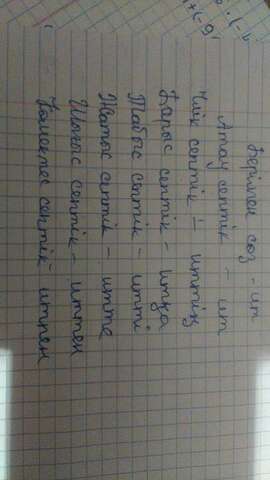 Берілген сөз - ит
Атау септік - ит
Ілік септік - иттің
Барыс септік - итқа
Табыс септік - итті
Жатыс септік - итте
Шығыс септік - иттен
Көмектес септік - итпен